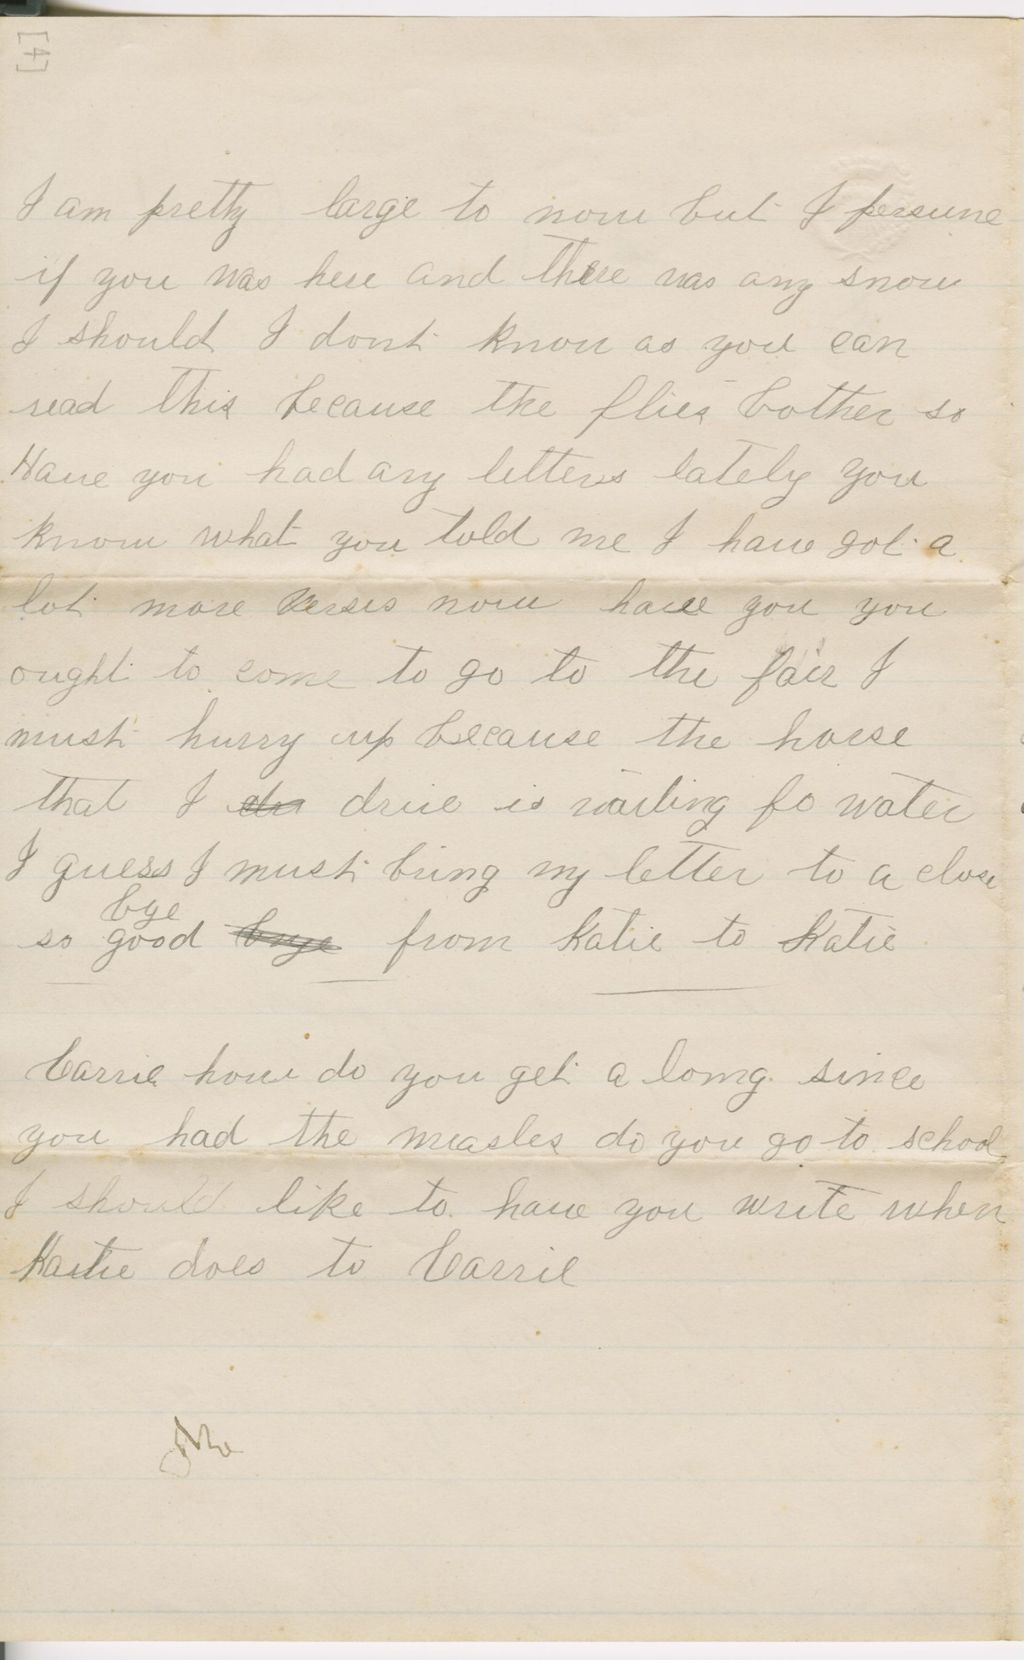 [4]
I am pretty large to now but I persume
if you was here and there was any snow
I should I dont know as you can
read this because the flies bother so
Have you had any letters lately you
know what you told me I have got a
lot more verses now have you you
ought to come to go to the fair I
must hurry up because the horse
that I dr drive is waiting fo water
I guess I must bring my letter to a close
bye
so good bye from Katie to Katie
Carrie how do you get a long since
you had the measles do you go to school
I should like to have you write when
Katie does to Carrie